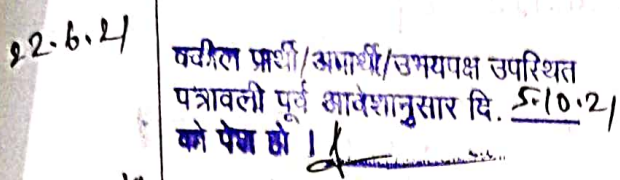 22.6.21
वकील प्रार्थी/अप्रार्थी/उभयपक्ष उपस्थित
पत्रावली पूर्व आदेशानुसार दि. 5.10.21
को पेश हो ।